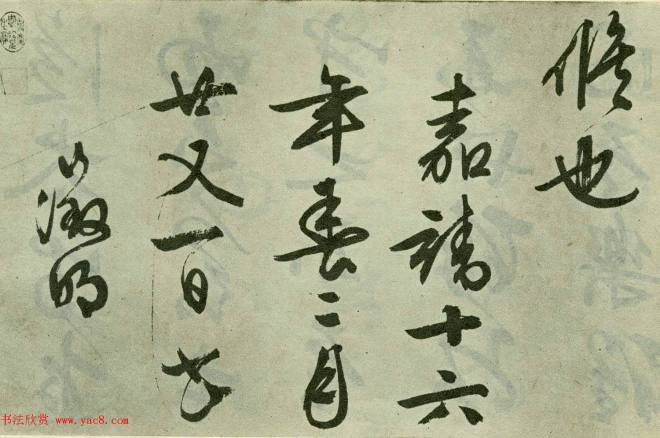 也
嘉靖十六
年春二月
廿又一日
徵明
书法欣赏 www.yac8.com